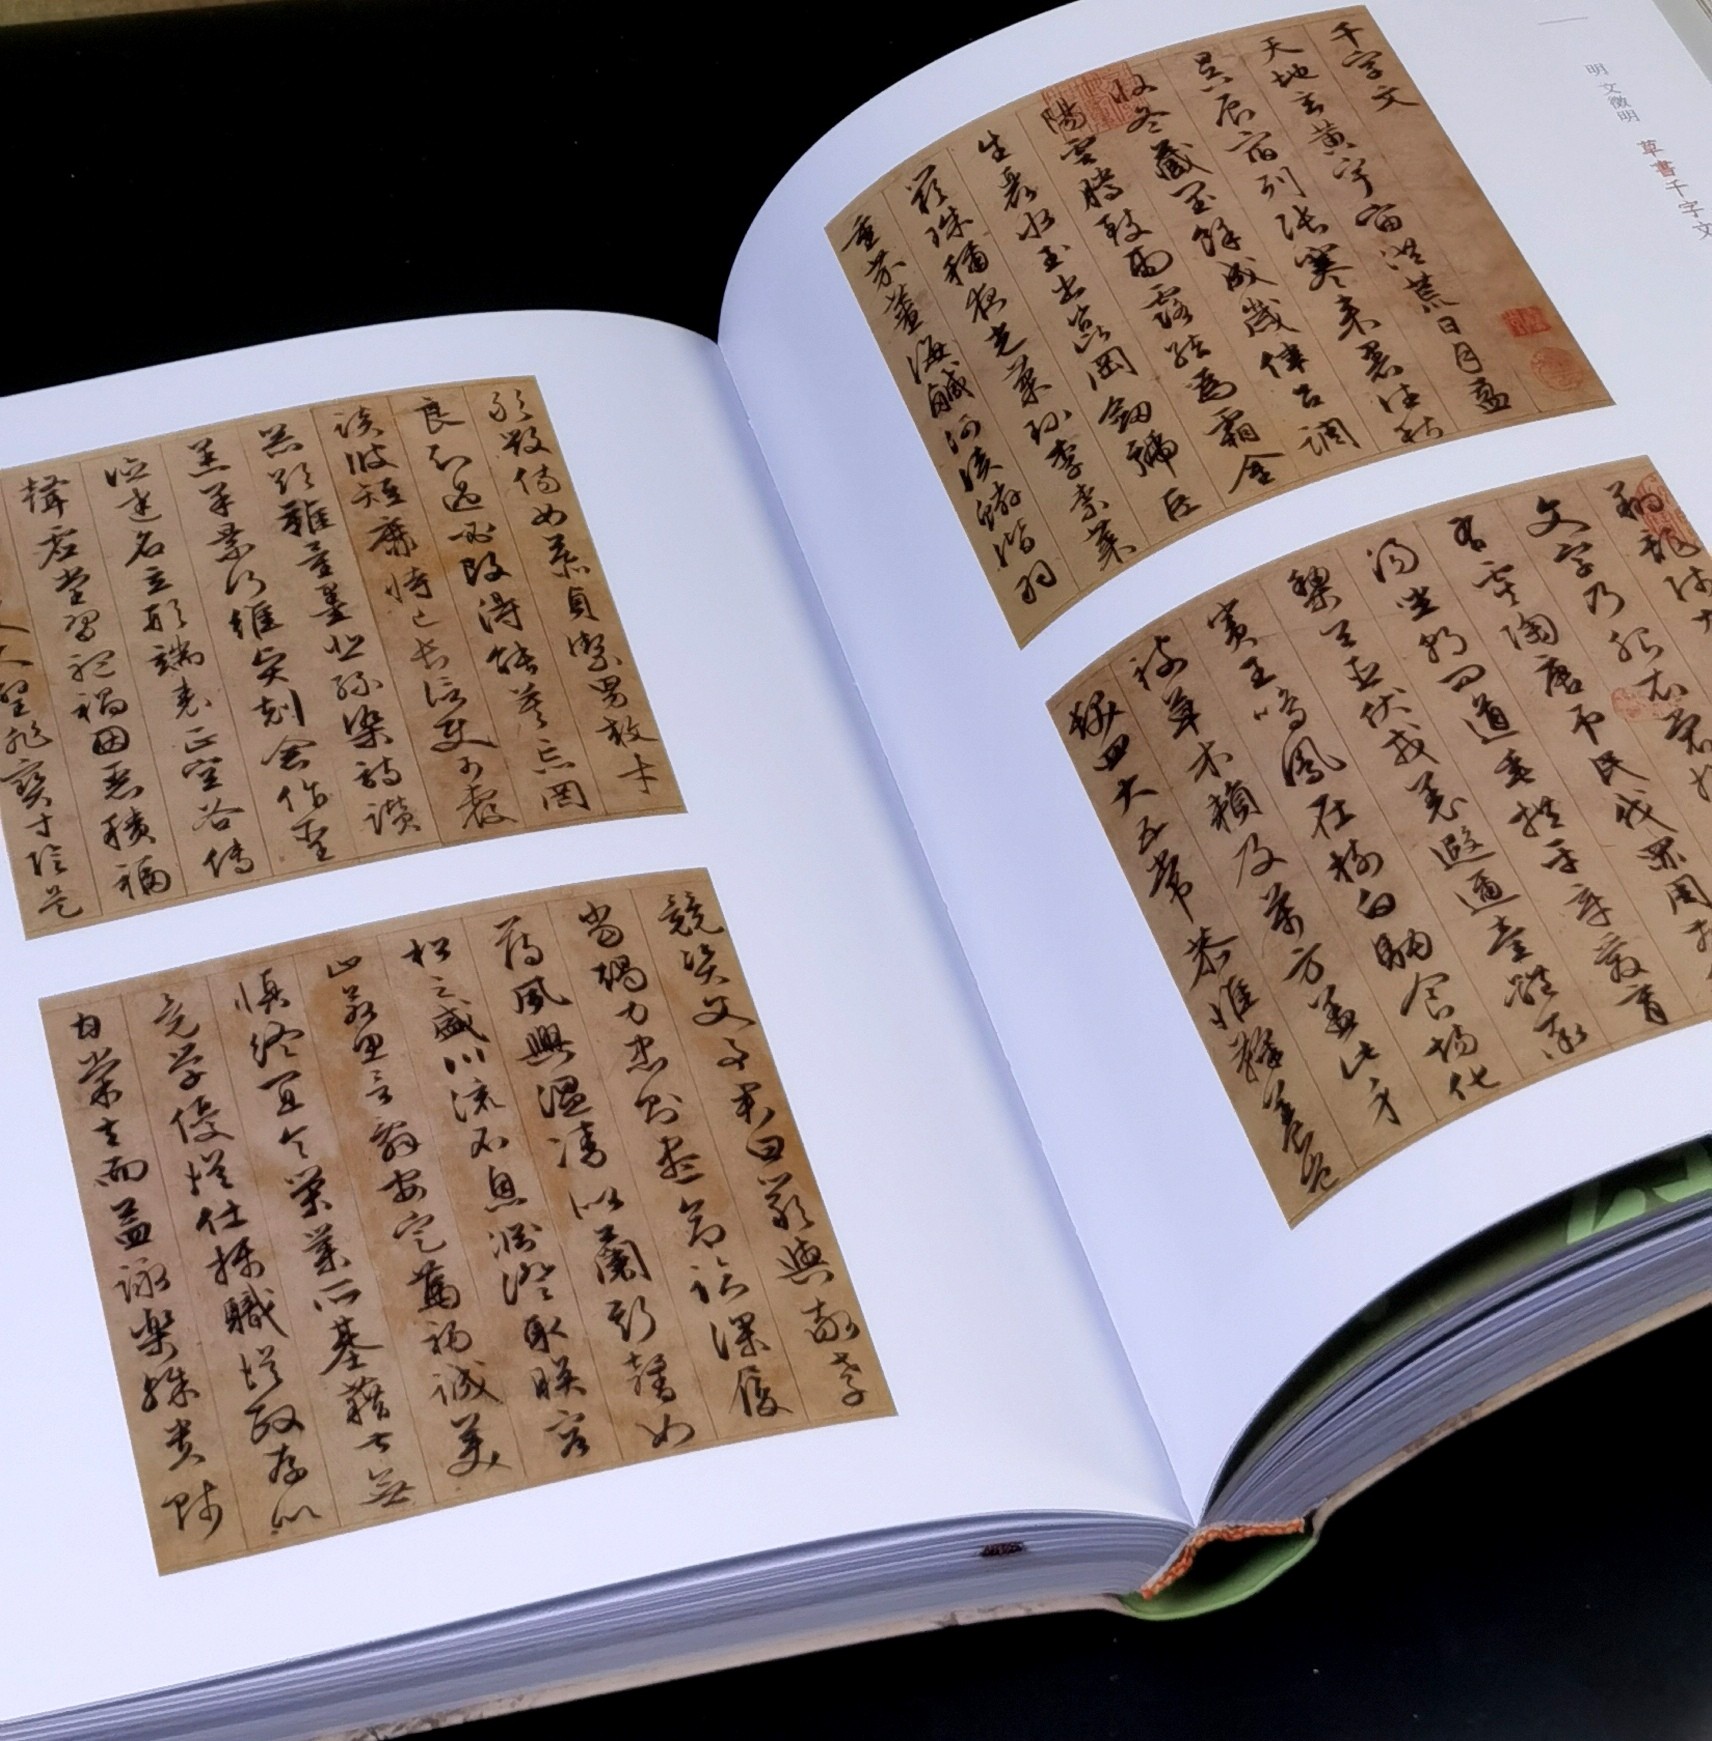 明 文徵明 草書千字文
千字文
天地玄黃宇宙洪荒日月盈
昃辰宿列張寒來暑往秋
收冬藏閏餘成歲律呂調
陽雲騰致雨露結為霜金
生麗水玉出崑岡劍號巨
闕珠稱夜光菓珍李柰菜
重芥薑海鹹河淡鱗潛羽
翔龍師火
文字乃服衣裳推
有虞陶唐弔民伐罪周發
湯坐朝問道垂拱平章愛育
黎首臣伏戎羌遐邇壹體率
賓王鳴鳳在樹白駒食場化
被草木賴及萬方蓋此身
髮四大五常恭惟鞠養豈
敢毀傷女慕貞絜男效才
良知過必改得能莫忘罔
談彼短靡恃己長信使可覆
器欲難量墨悲絲染詩讚
羔羊景行維賢剋念作聖
德建名立形端表正空谷傳
聲虛堂習聽禍因惡積福
尺璧非寶寸陰是
競資父事君曰嚴與敬孝
當竭力忠則盡命臨深履
薄夙興溫凊以蘭斯馨如
松之盛川流不息淵澄取暎容
止若思言辭安定篤初誠美
慎終宜令榮業所基藉甚無
竟學優登仕攝職從政存以
甘棠去而益詠樂殊貴賤